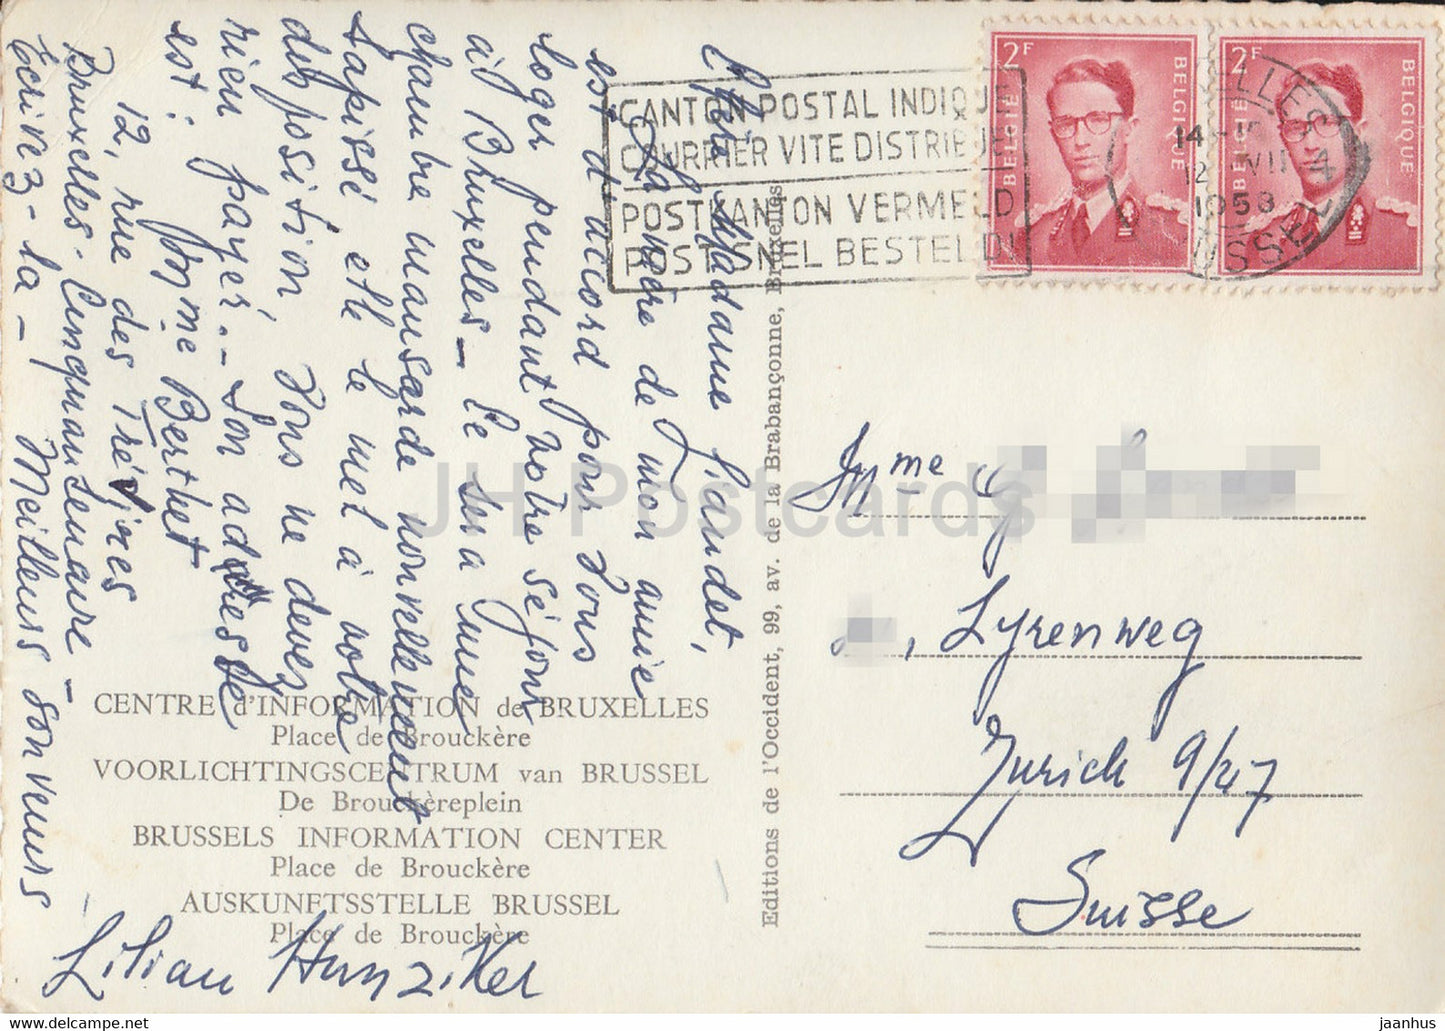 Chère Madame Landet,
La mère de mon amie
est d'accord pour Vous
loger pendant votre séjour
à Bruxelles - Ce sera une
chambre mansarde nouvellement
tapissé, elle le met à votre
disposition. Vous ne devez
rien payer. - Son adresse
est: Mme Berthet
12, rue des Trévires
Bruxelles - Cinquantenaire -
Écrivez-la - Meilleurs souvenirs
Lilian Hunziker
CENTRE d'INFORMATION de BRUXELLES
Place de Brouckère
VOORLICHTINGSCENTRUM van BRUSSEL
De Brouckèreplein
BRUSSELS INFORMATION CENTER
Place de Brouckère
AUSKUNFTSSTELLE BRUSSEL
Place de Brouckère
Editions de l'Occident, 99, av. de la Brabançonne, Bruxelles
CANTON POSTAL INDIQUE
COURRIER VITE DISTRIBUE
POSTKANTON VERMELD
POST SNEL BESTELD!
2F BELGIË BELGIQUE
2F BELGIË BELGIQUE
14-15
12 VII
1958
Mme G
, Lyrenweg
Zurich 9/47
Suisse
JH Postcards
www.delcampe.net
jaanhus